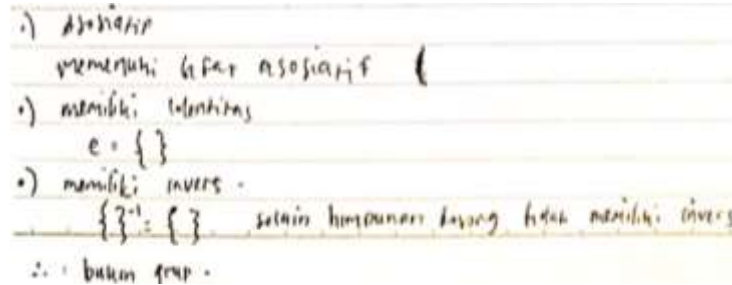 •) Asosiatif
memenuhi sifat asosiatif (
•) memiliki identitas
e = { }
•) memiliki invers .
{ }⁻¹ = { } selain himpunan kosong tidak memiliki invers
∴ bukan grup .